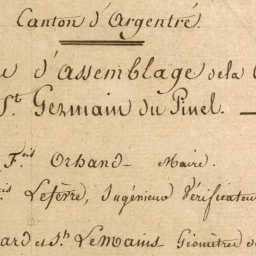 Canton d'Argentré.
d'Assemblage de la
St Germain du Pinel.
Fois Orhand Maire.
Lefèvre, Ingénieur Vérificateur
et Jh LeMains Géomètres